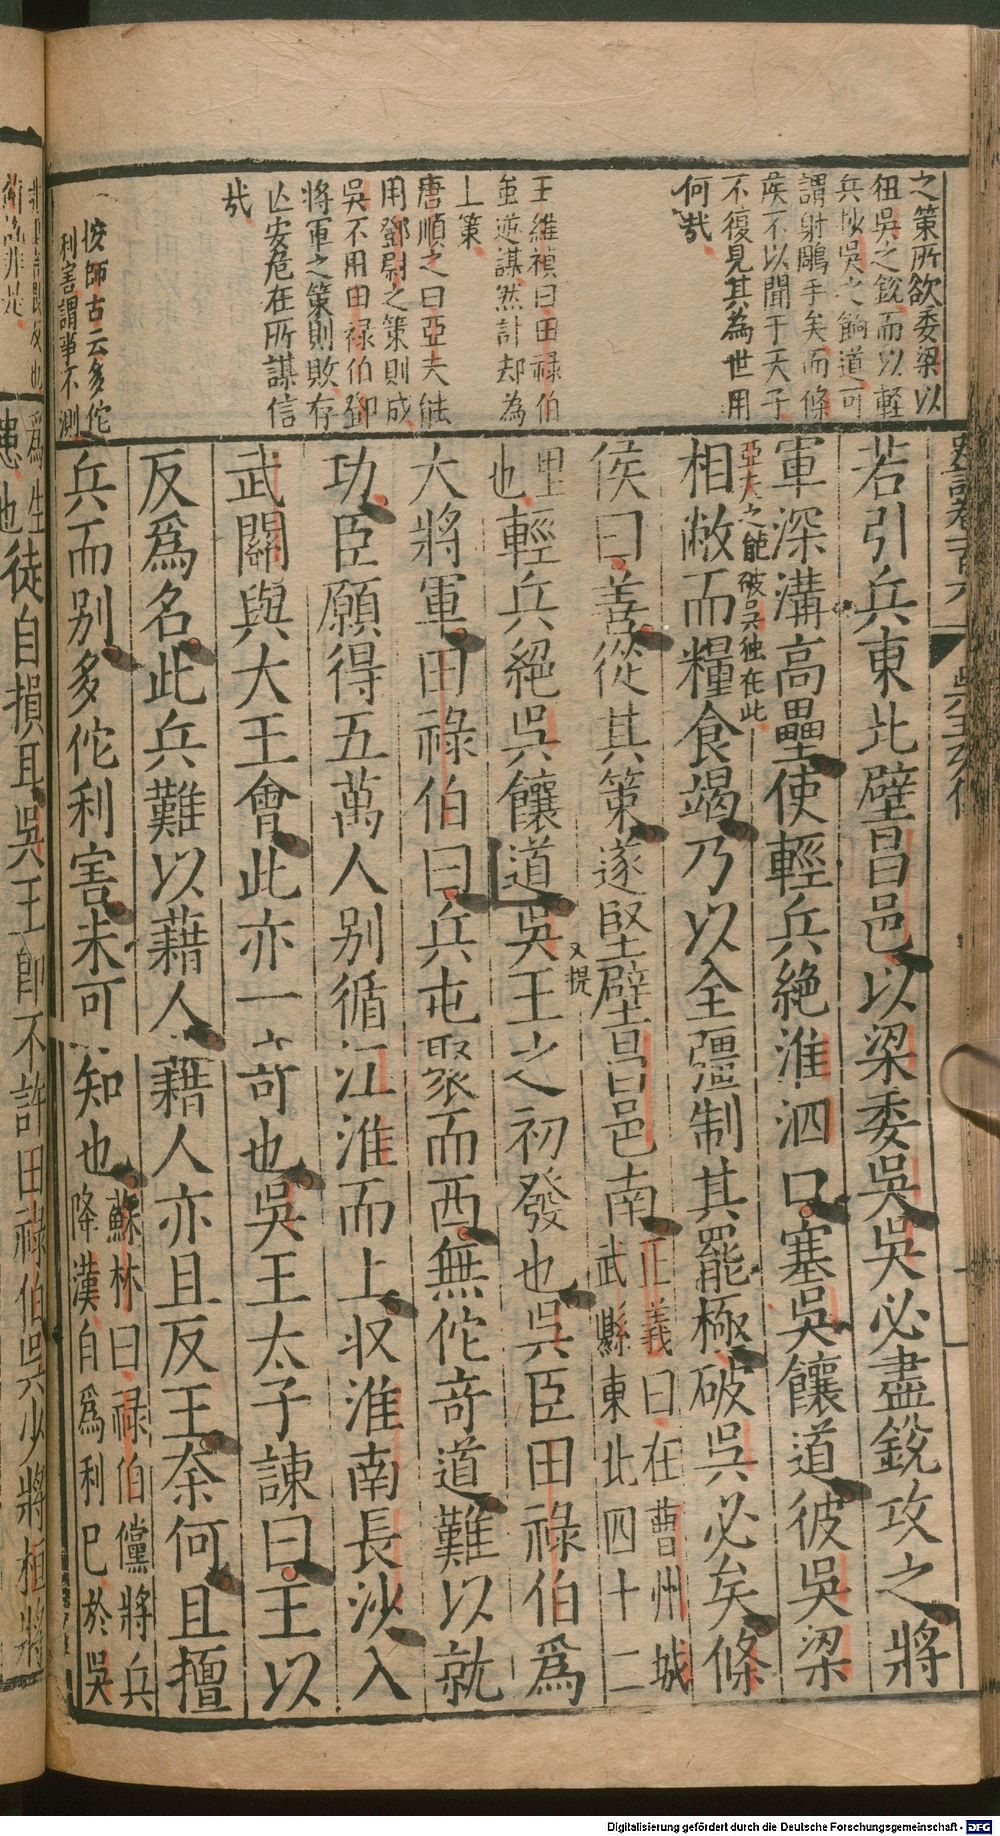 之策所欲委梁以
狃吳之銳而以輕
兵抄吳之餉道可
謂射鵰手矣而條
侯不以聞于天子
不復見其為世用
何哉
王維禎曰田祿伯
雖逆謀然計却為
上策
唐順之曰亞夫能
用鄧尉之策則成
吳不用田祿伯鄧
將軍之策則敗存
亾安危在所謀信
哉
一按師古云多佗
利害謂事不測
若引兵東北壁昌邑以梁委吳吳必盡銳攻之將
軍深溝高壘使輕兵絶淮泗口塞吳饟道彼吳梁
亞夫之能破吳独在此
相敝而糧食竭乃以全彊制其罷極破吳必矣條
侯曰善從其策遂堅壁昌邑南正義曰在曹州城武縣東北四十二
又提
里也輕兵絕吳饟道吳王之初發也吳臣田祿伯爲
大將軍田祿伯曰兵屯聚而西無佗竒道難以就
功臣願得五萬人别循江淮而上収淮南長沙入
武關與大王會此亦一竒也吳王太子諫曰王以
反爲名此兵難以藉人藉人亦且反王柰何且擅
兵而别多佗利害未可知也蘇林曰祿伯儻將兵降漢自爲利巳於吳
爲生
患也徒自損耳吳王卽不許田祿伯吳少將桓將
Digitalisierung gefördert durch die Deutsche Forschungsgemeinschaft - DFG